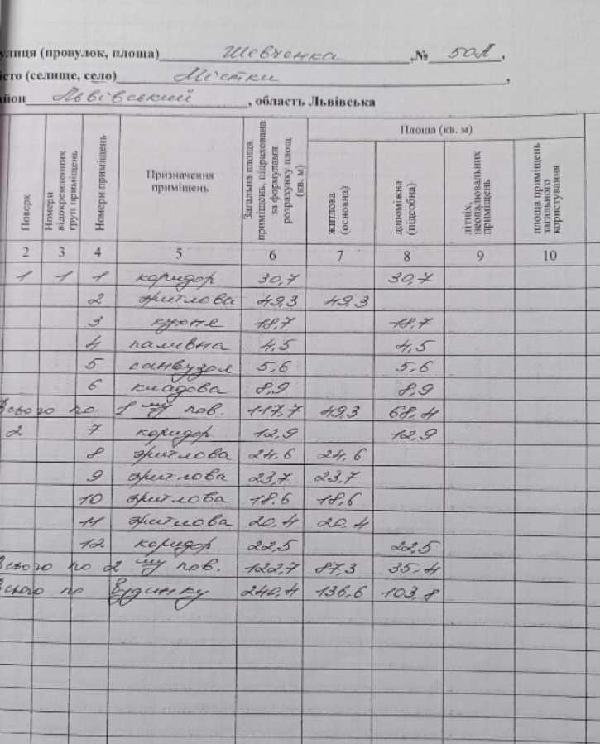 улиця (провулок, площа) Шевченка ,№ 50А ,
істо (селище, село) Містки ,
айон Львівський , область Львівська
Поверх
Номери відокремлених груп приміщень
Номери приміщень
Призначення приміщень
Загальна площа приміщень, підрахована за формулами розрахунку площ (кв. м)
Площа (кв. м)
житлова (основна)
допоміжна (підсобна)
літніх, неопалювальних приміщень
площа приміщень загального користування
2 3 4 5 6 7 8 9 10
1 1 1 коридор 30,7 30,7
2 житлова 49,3 49,3
3 кухня 18,7 18,7
4 паливна 4,5 4,5
5 санвузол 5,6 5,6
6 кладова 8,9 8,9
Всього по 1 му пов. 117,7 49,3 68,4
2 7 коридор 12,9 12,9
8 житлова 24,6 24,6
9 житлова 23,7 23,7
10 житлова 18,6 18,6
11 житлова 20,4 20,4
12 коридор 22,5 22,5
Всього по 2 му пов. 122,7 87,3 35,4
Всього по будинку 240,4 136,6 103,8